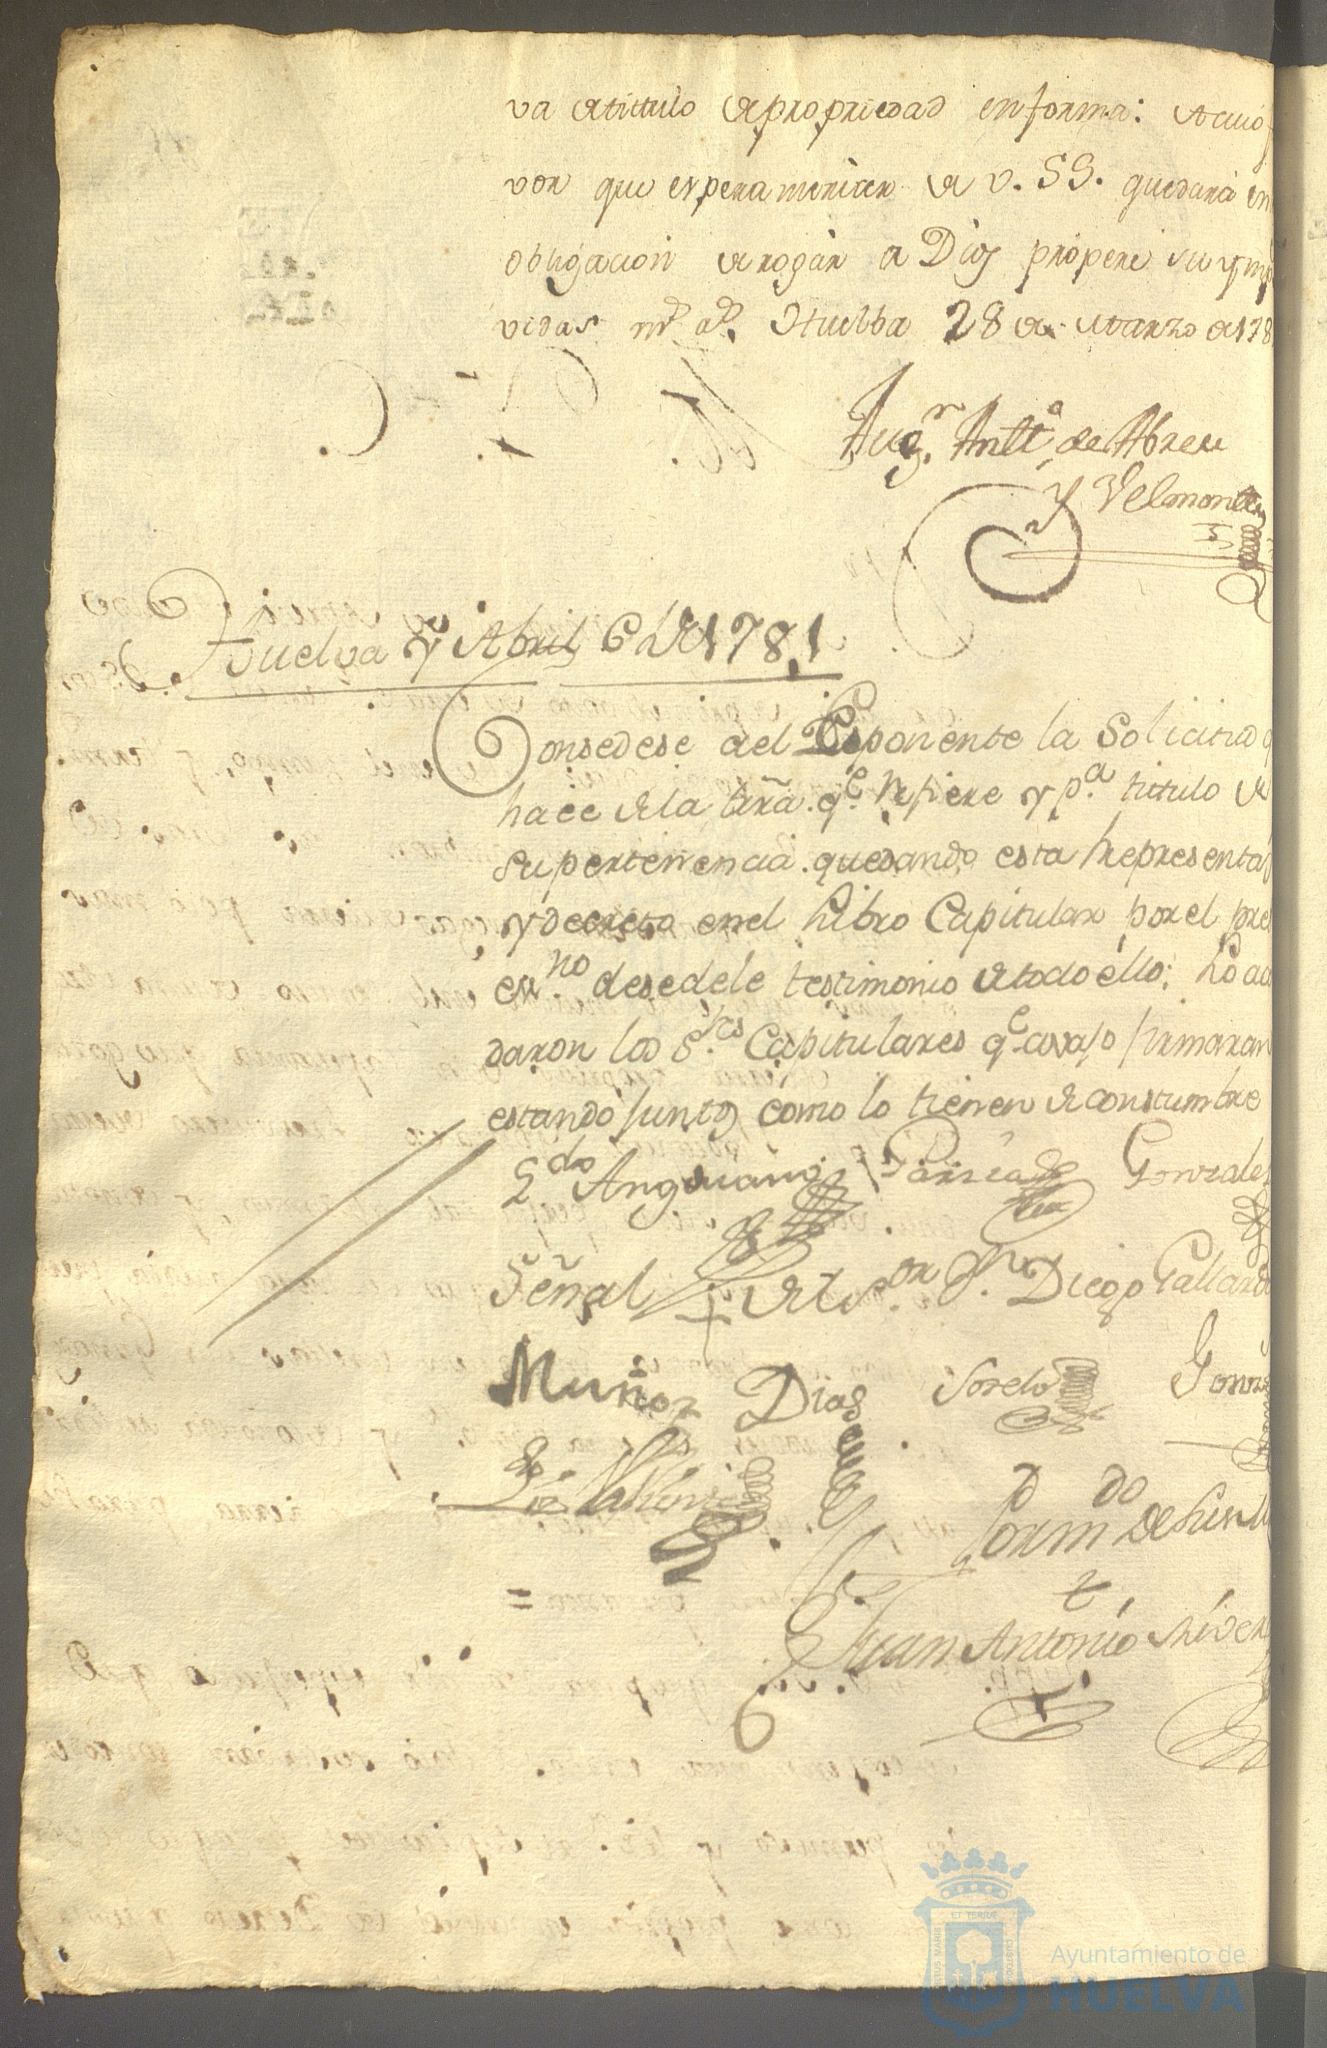 va de titulo de propriedad en forma: A cuio
vor que espera merecer de V. SS. quedará en
obligacion de rogár a Dios prospere su ymp
vidas ms. as. Huelba 28 de Marzo de 178
Augn. Antto. de Abreu
y Velmonte
Huelva y Abril 6 de 1781
Consedese a el Esponente la Solicitud q
hace de la trra. qe. Refiere y pa. titulo de
su pertenencia quedando esta Representa
y decreto en el Libro Capitular por el pre
essno desedele testimonio de todo ello; Lo ac
daron los Sres Capitulares qe avajo firmaran
estando Juntos como lo tienen de constumbre
Ldo Anguiano Garzia Gonzales
Señal + del Sor. Dn. Diego Gallardo
Muñoz Dias Sorelo Gonz
Juan Antonio River
Ayuntamiento de
HUELVA